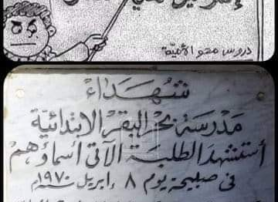 دروس محو الأمية
شهداء
مدرسة بحر البقر الابتدائية
أستشهد الطلبة الآتى أسماؤهم
فى صبيحة يوم ٨ ابريل ١٩٧٠